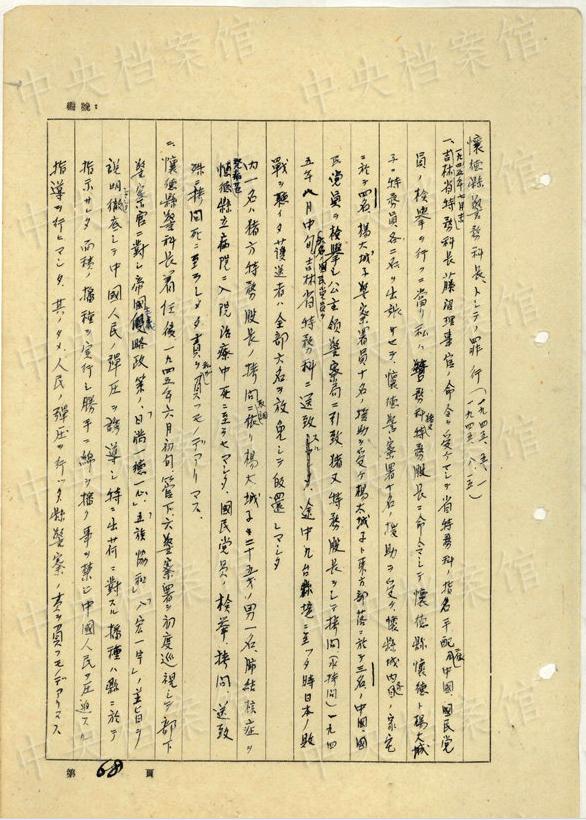 中央档案馆
編號：
懷德縣警務科長トシテノ罪行（一九四五、五、一
一九四五、八、一五）
一、一九四五年七月末吉林省特務科長藤沼理事官ノ命令ヲ受ケマシテ省特務科ノ指名手配中國國民党
員ノ検挙ヲ行フニ當リ私ハ警務科特務股長ニ命令シテ懷德縣懷德ト楊大城
子ニ特務員各二名ヲ出張サセテ、懷德警察署十名ノ援助ヲ受ケ懷縣城内ノ家宅
ニ於テ四名、楊大城子警察署員十名ノ援助ヲ受ケ楊大城子東方部落ニ於テ三名ノ中國國
民党員ヲ検挙シ公主嶺警察局ニ引致 特務股長ヲシテ拷問（水拷問）一九四
五年八月中旬吉林省特務科ニ送致 途中九台縣境ニ至ッタ時日本ノ敗
戰ヲ聽イタ護送者ハ全部六名ヲ放免シテ皈還シマシタ
内一名ハ 特務股長ノ拷問ニ依リ楊大城子ノ二十五才ノ男一名肺結核症ヲ
懷德縣立病院ニ入院治療中死ニ至ラセマシタ、國民党員ノ検挙、拷問、送致
殊ニ拷問死ニ至ラシメタ責ヲ負フモノデアリマス、
二、懷德縣警務科長ニ着任後一九四五年六月初旬管下六警察署ヲ初度巡視シテ部下
警察官ニ對シ帝國主義侵略政策ノ「日満一德一心」「民族協和」「八宏一宇」ノ主旨ヲ
説明徹底シテ中國人民ノ彈圧ヲ誘導シ特ニ出荷ニ對スル播種ハ縣ニ於テ
指示サレタ面積ノ播種ヲ実行シ勝手ニ綿ヲ播ク事ヲ禁ジ中國人民ヲ圧迫スル
指導ヲ行ヒマシタ、其ノタメ人民ノ彈圧ヲ行ッタ縣警察ノ責ヲ負フモノデアリマス
第 68 頁